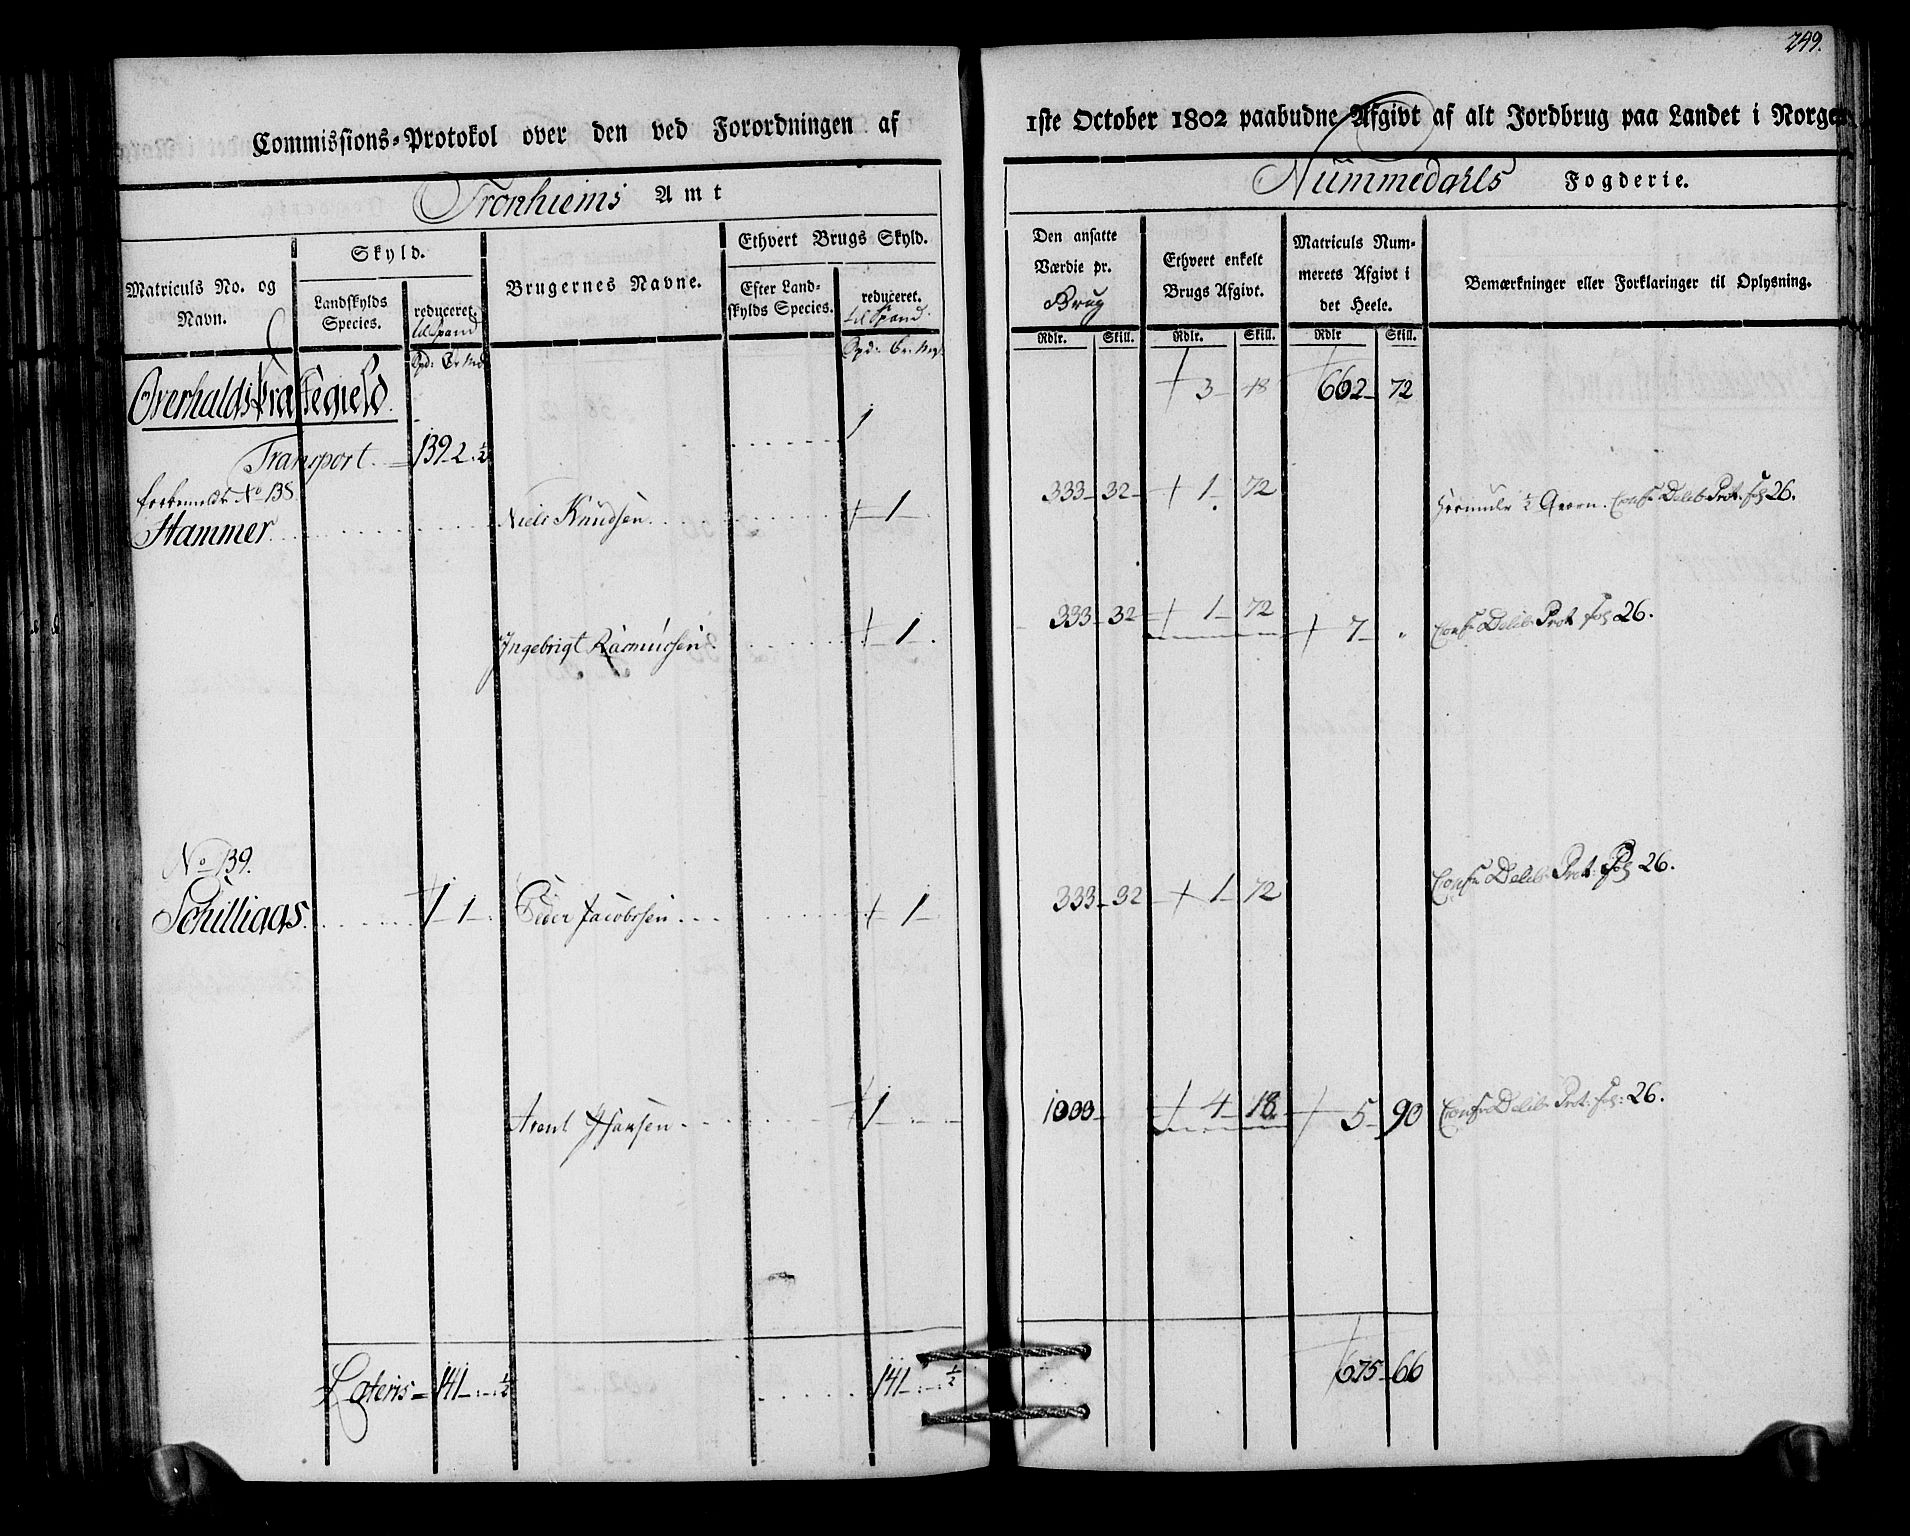 249.
Commissions-Protokol over den ved Forordningen af 1ste October 1802 paabudne Afgivt af alt Jordbrug paa Landet i Norge.
Tronhiems Amt Nummedahls Fogderie.
Matriculs No. og Navn.
Skyld.
Landskylds Species.
reduceret. til Spand
Brugernes Navne.
Ethvert Brugs Skyld.
Efter Landskylds Species.
reduceret. til Spand.
Den ansatte Værdie pr. Brug
Ethvert enkelt Brugs Afgivt.
Matriculs Nummerets Afgivt i det Heele.
Bemærkninger eller Forklaringer til Oplysning.
Rdlr. Skill. Rdlr. Skill. Rdlr Skill.
Overhalds Præstegield. 1 3 48 662 72
Transport. 139 2 ½
No 138
Hammer Niels Knudsen 1 333 32 1 72 Conf Delib Prot. fol 26.
Ingebrigt Rasmussen 1 333 32 1 72 7 " Conf Delib Prot fol 26.
No 139.
Schilliaas 1 1 Peder Jacobsen 1 333 32 1 72 Conf Delib Prot: fol 26.
Arent Hansen 1 1000 4 18 5 90 Conf Delib Prot: fol: 26.
Lateris 141 ½ 141 ½ 675 66